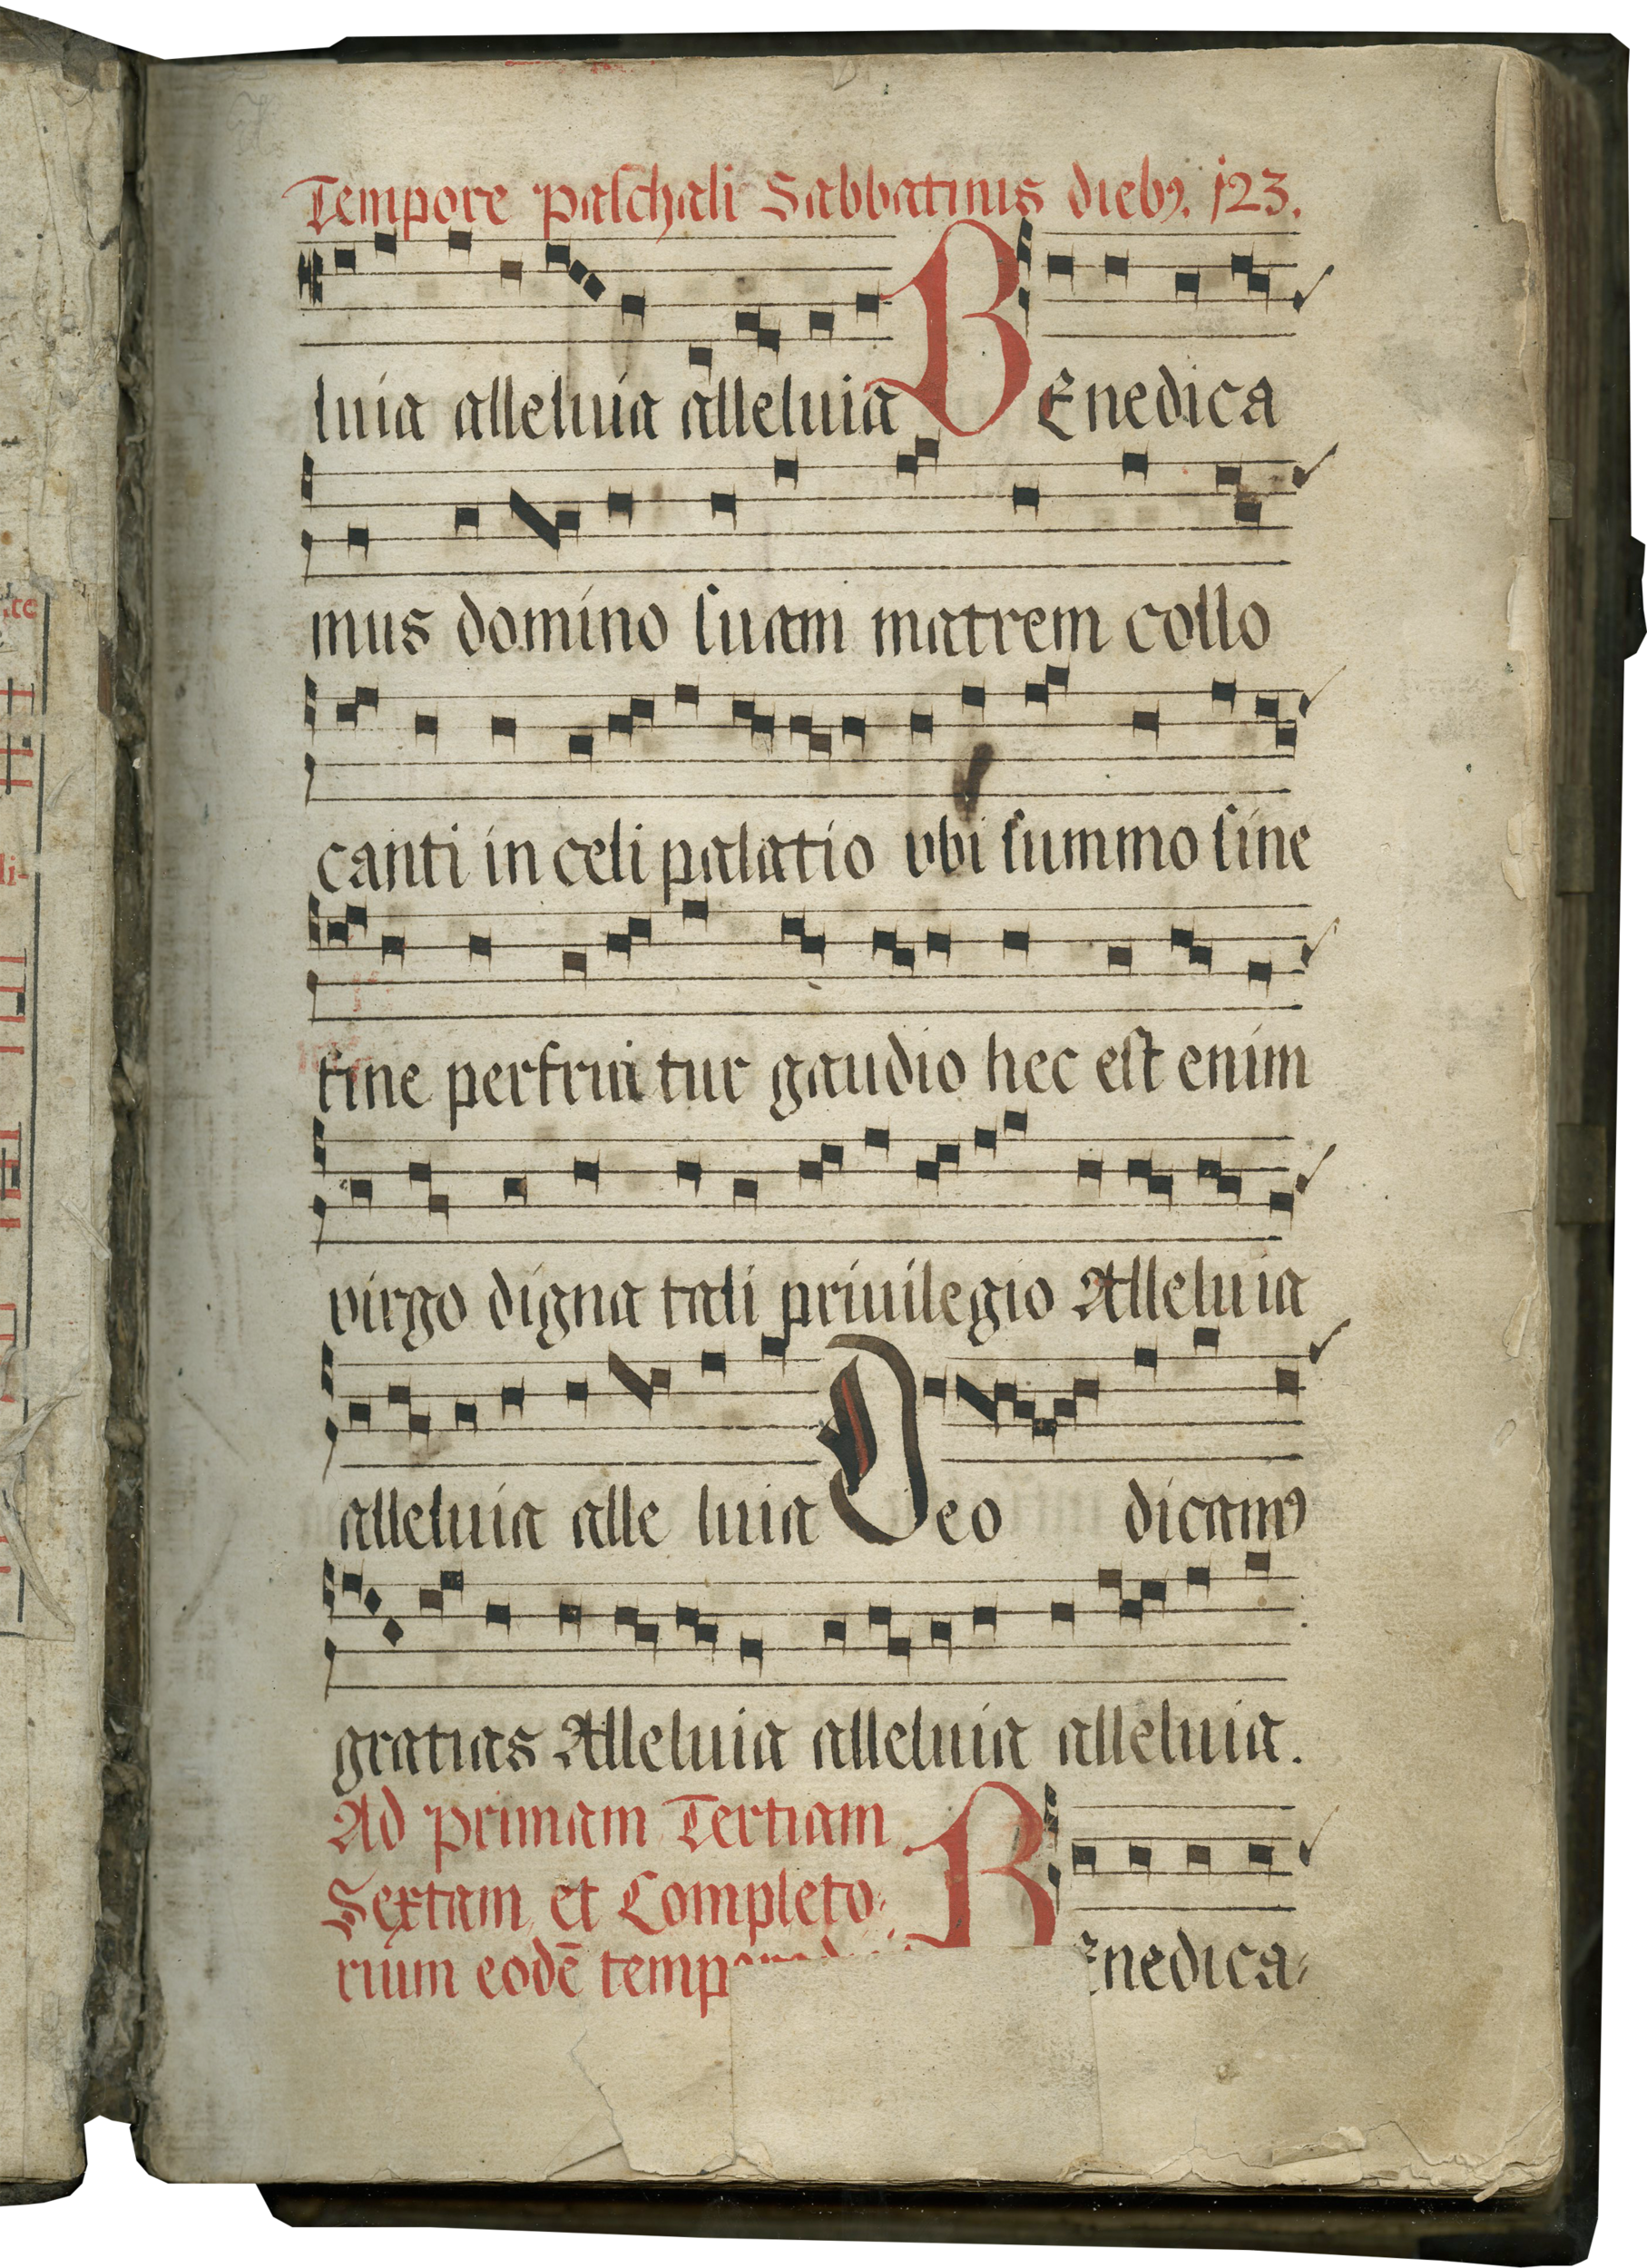 Tempore paschali Sabbatinis dieb9. 123.
luia alleluia alleluia BEnedica
mus domino suam matrem collo
canti in celi palatio vbi summo sine
fine perfruitur gaudio hec est enim
virgo digna tali priuilegio Alleluia
alleluia alle luia Deo dicam9
gratias Alleluia alleluia alleluia.
Ad primam Tertiam
Sextam et Completo-
rium eodē BEnedica-